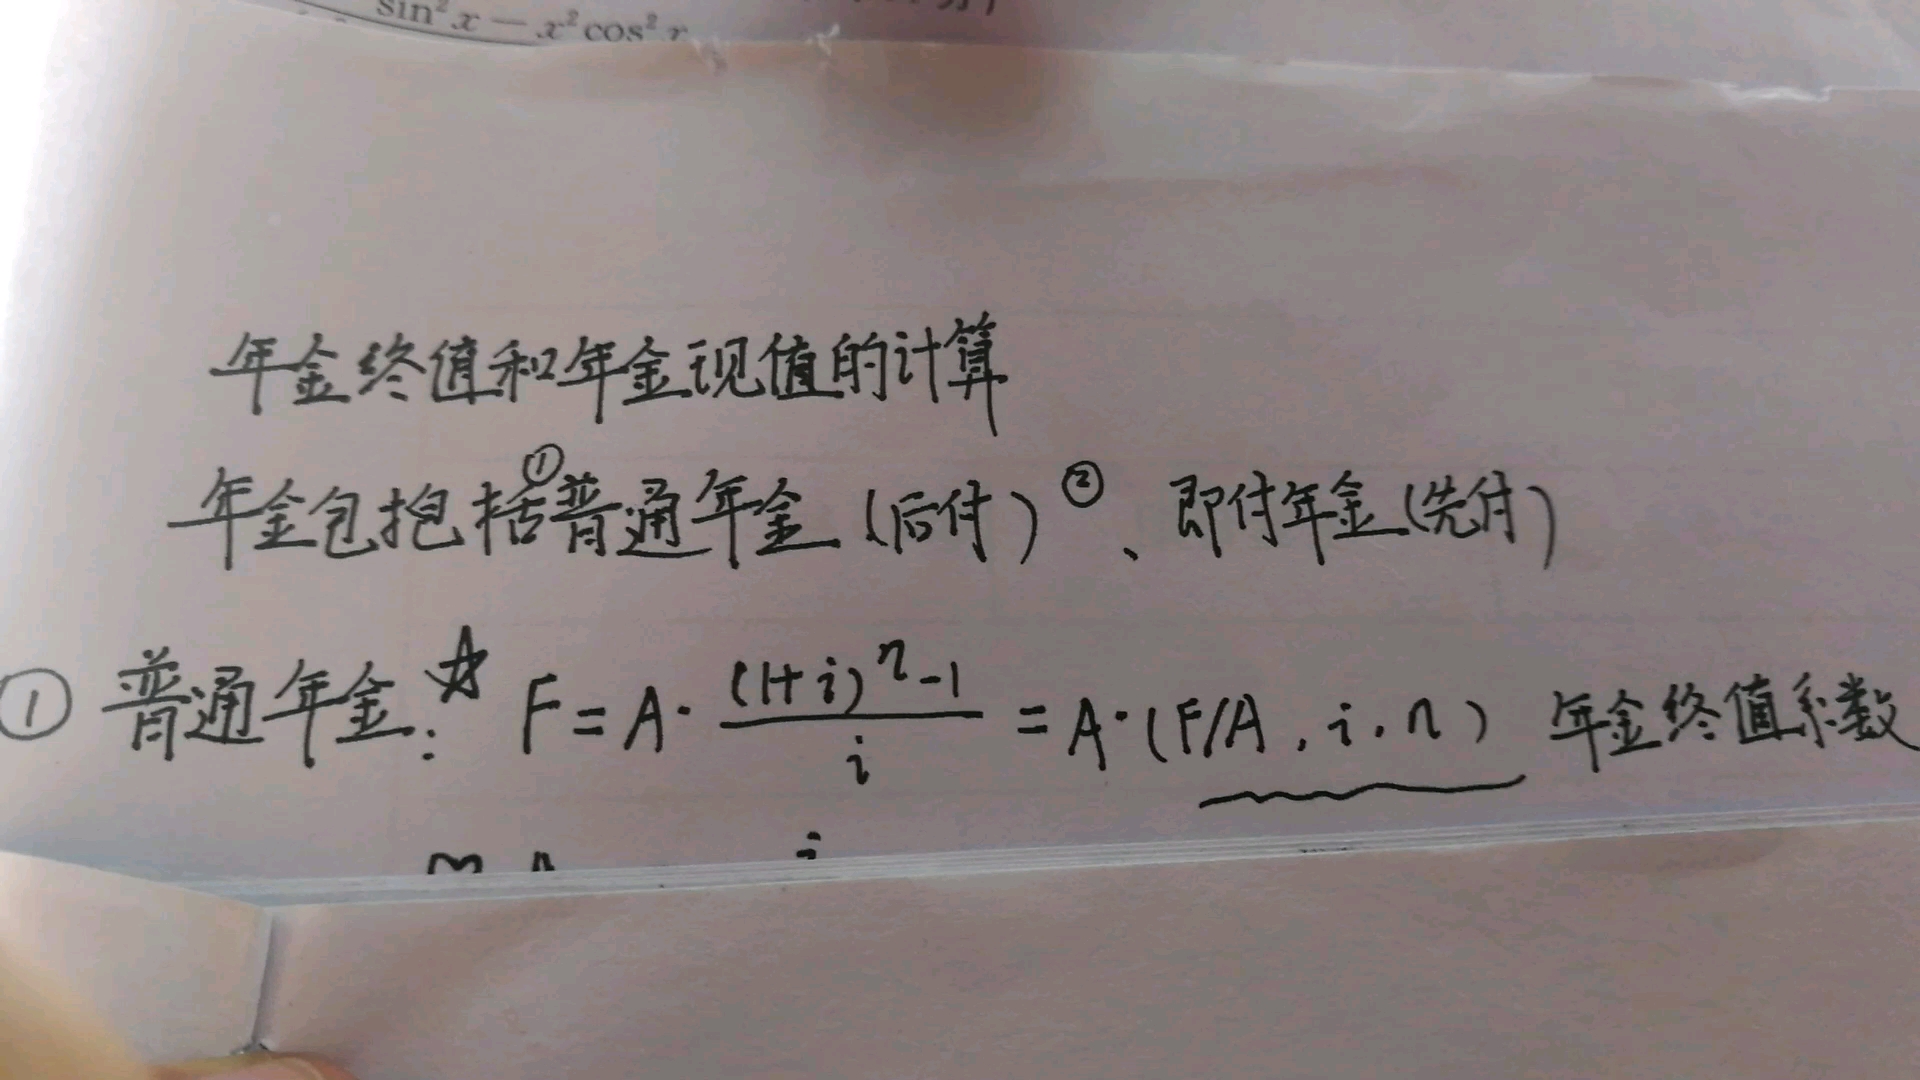 sin²x − x²cos²x
年金终值和年金现值的计算
年金包抱括①普通年金(后付)②、即付年金(先付)
① 普通年金:☆ F = A · \frac{(1+i)^n-1}{i} = A·(F/A, i, n) 年金终值系数